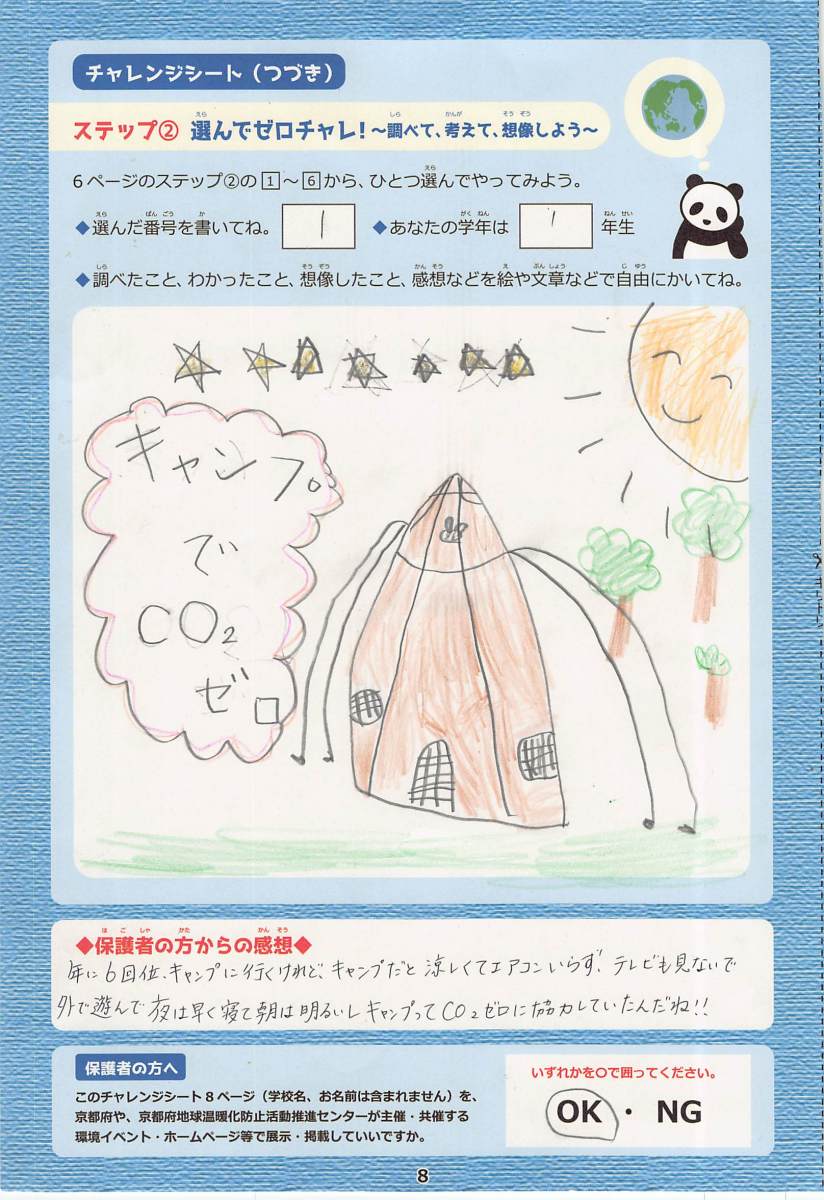 チャレンジシート（つづき）
ステップ② 選んでゼロチャレ！～調べて、考えて、想像しよう～
6ページのステップ②の1～6から、ひとつ選んでやってみよう。
◆選んだ番号を書いてね。 1 ◆あなたの学年は 1 年生
◆調べたこと、わかったこと、想像したこと、感想などを絵や文章などで自由にかいてね。
キャンプ
で
CO₂
ゼロ
◆保護者の方からの感想◆
年に6回位、キャンプに行くけれど、キャンプだと涼しくてエアコンいらず、テレビも見ないで
外で遊んで夜は早く寝て朝は明るいしキャンプってCO₂ゼロに協力していたんだね!!
保護者の方へ
このチャレンジシート8ページ（学校名、お名前は含まれません）を、
京都府や、京都府地球温暖化防止活動推進センターが主催・共催する
環境イベント・ホームページ等で展示・掲載していいですか。
いずれかを○で囲ってください。
OK・NG
8